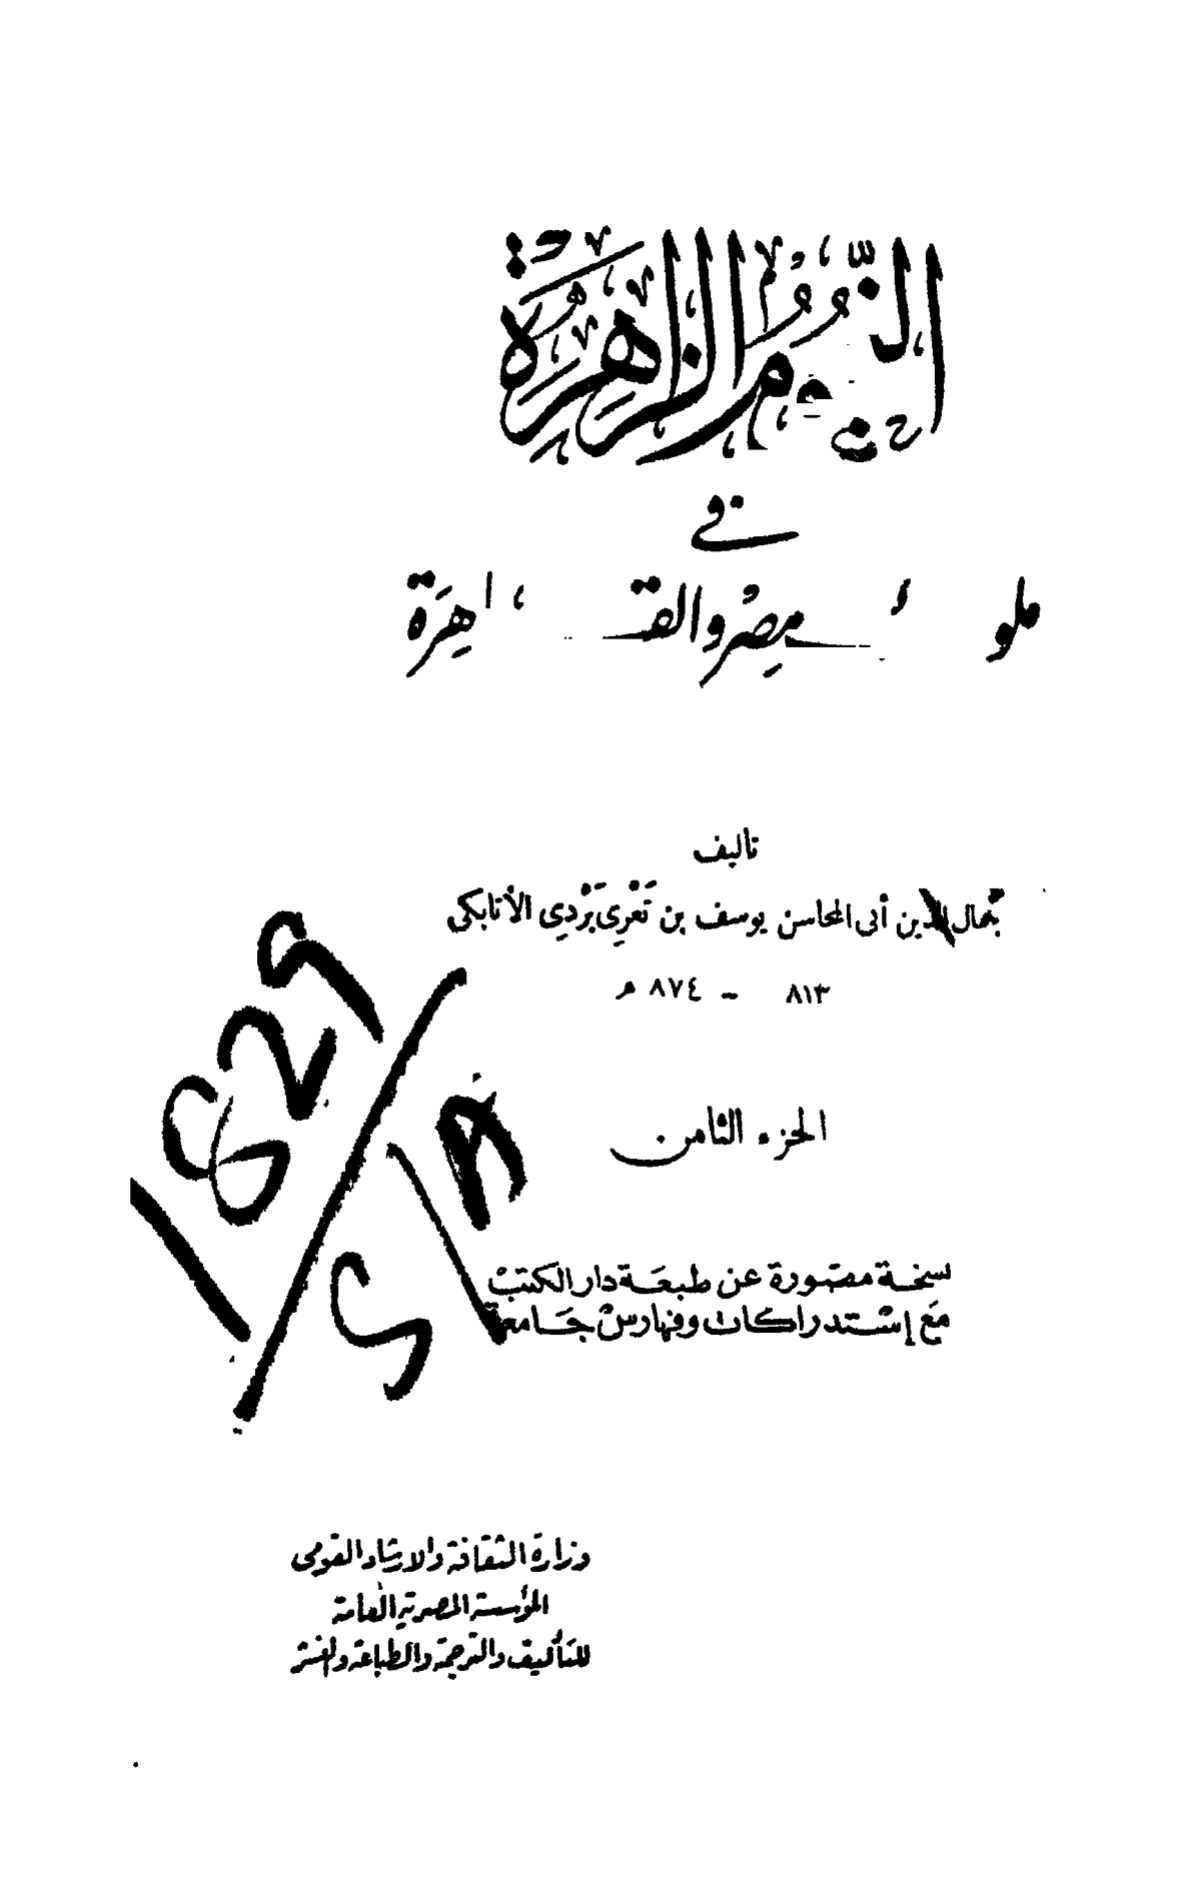 النُّجُومُ الزَّاهِرَةُ
في
ملوك مِصْر والقاهِرَة
تأليف
جَمال الدين أبى المحاسن يوسف بن تَغْرِى بَرْدِى الأتابكى
٨١٣ - ٨٧٤ هـ
الجزء الثامن
نسخة مصَورة عن طبعَة دار الكتبْ
مَع إسْتدراكات وفهارسْ جَامعة
وزارة الثقافة والارشاد القومى
المؤسسة المصرية العامة
للتأليف والترجمة والطباعة والنشر
1829